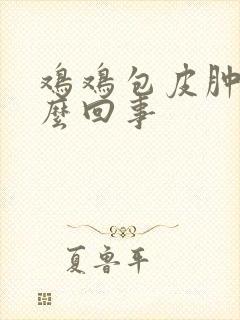 鸡鸡包皮肿
么回事
夏鲁平